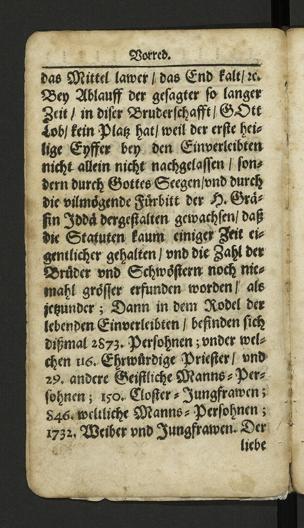 Vorred.
das Mittel lawer / das End kalt / ꝛc.
Bey Ablauff der gesagter so langer
Zeit / in diser Bruderschafft / GOtt
Lob / kein Platz hat / weil der erste hei-
lige Eyffer bey den Einverleibten
nicht allein nicht nachgelassen / son-
dern durch Gottes Seegen / vnd durch
die vilmögende Fürbitt der H. Grä-
fin Jddä dergestalten gewachsen / daß
die Statuten kaum einiger Zeit ei-
gentlicher gehalten / vnd die Zahl der
Brüder vnd Schwöstern noch nie-
mahl grösser erfunden worden / als
jetzunder ; Dann in dem Rodel der
lebenden Einverleibten / befinden sich
dißmal 2873. Persohnen ; vnder wel-
chen 116. Ehrwürdige Priester / vnd
29. andere Geistliche Manns-Per-
sohnen ; 150. Closter-Jungfrawen ;
846. weltliche Manns-Persohnen ;
1732. Weiber vnd Jungfrawen. Der
liebe